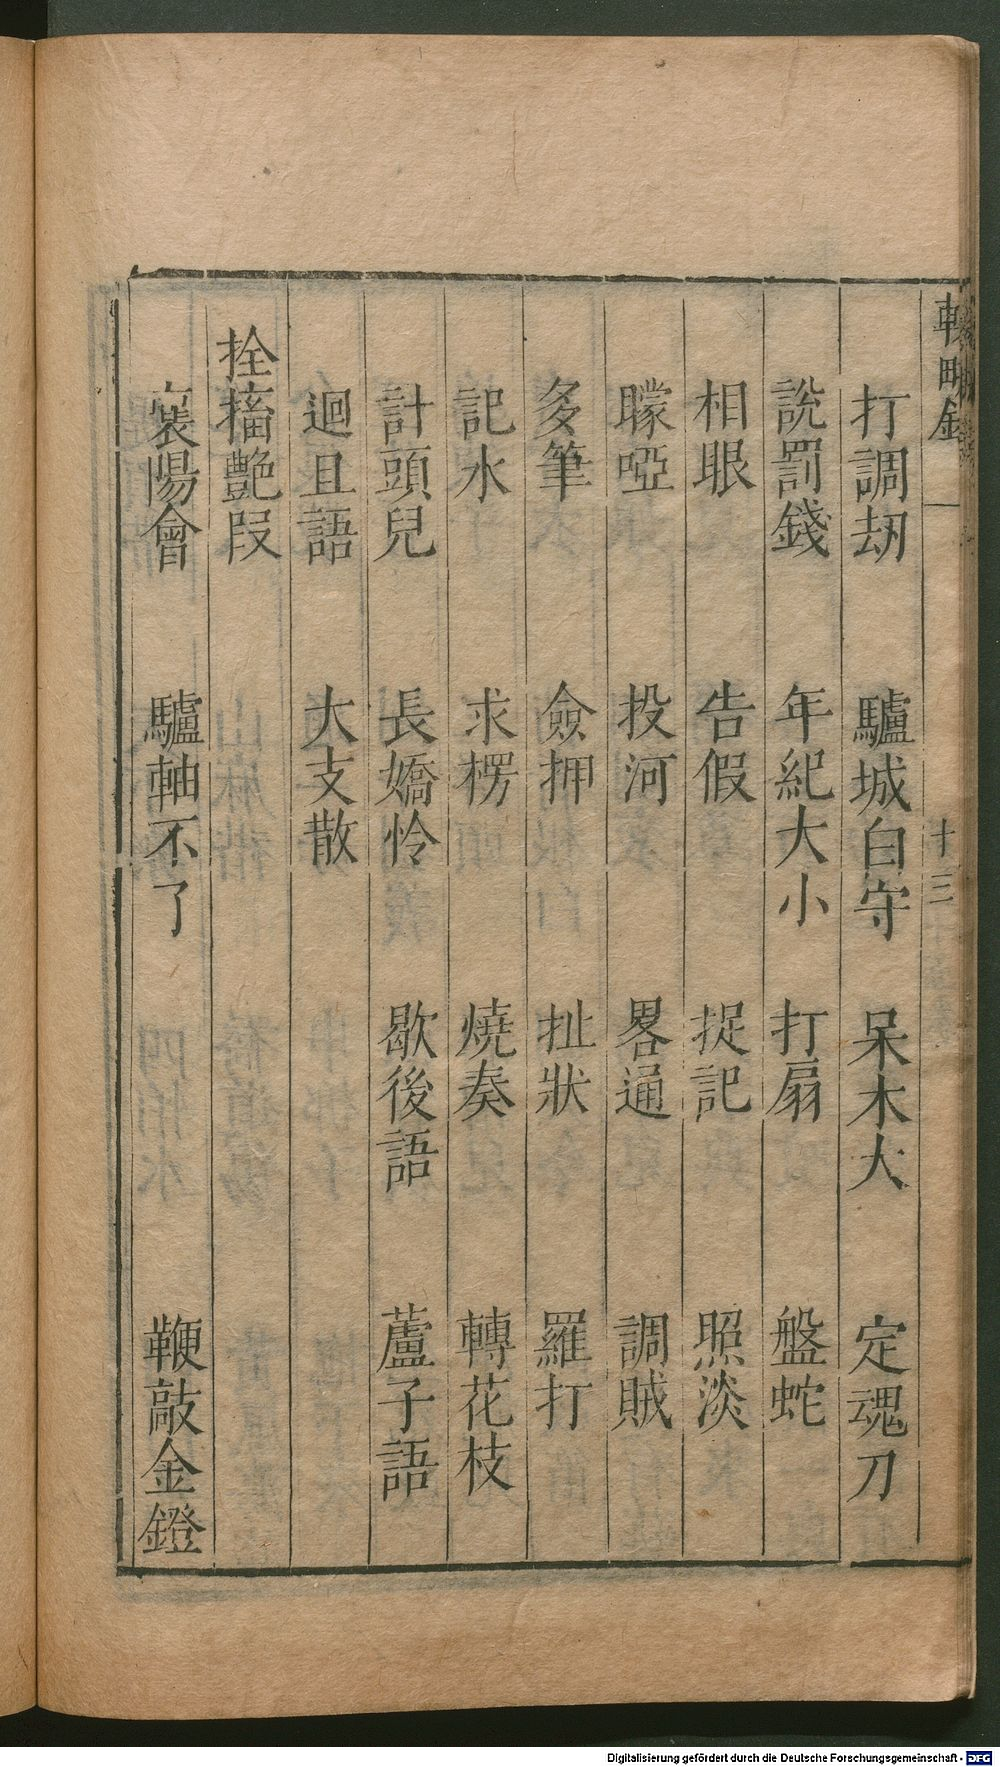 打調刼　驢城白守　呆木大　定魂刀
說罰錢　年紀大小　打扇　盤蛇
相眼　告假　捉記　照淡
矇啞　投河　畧通　調賊
多筆　僉押　扯狀　羅打
記水　求楞　燒奏　轉花枝
計頭兒　長嬌怜　歇後語　蘆子語
迴且語　大支散
拴搐艷叚
襄陽會　驢軸不了　鞭敲金鐙
十三
Digitalisierung gefördert durch die Deutsche Forschungsgemeinschaft - DFG